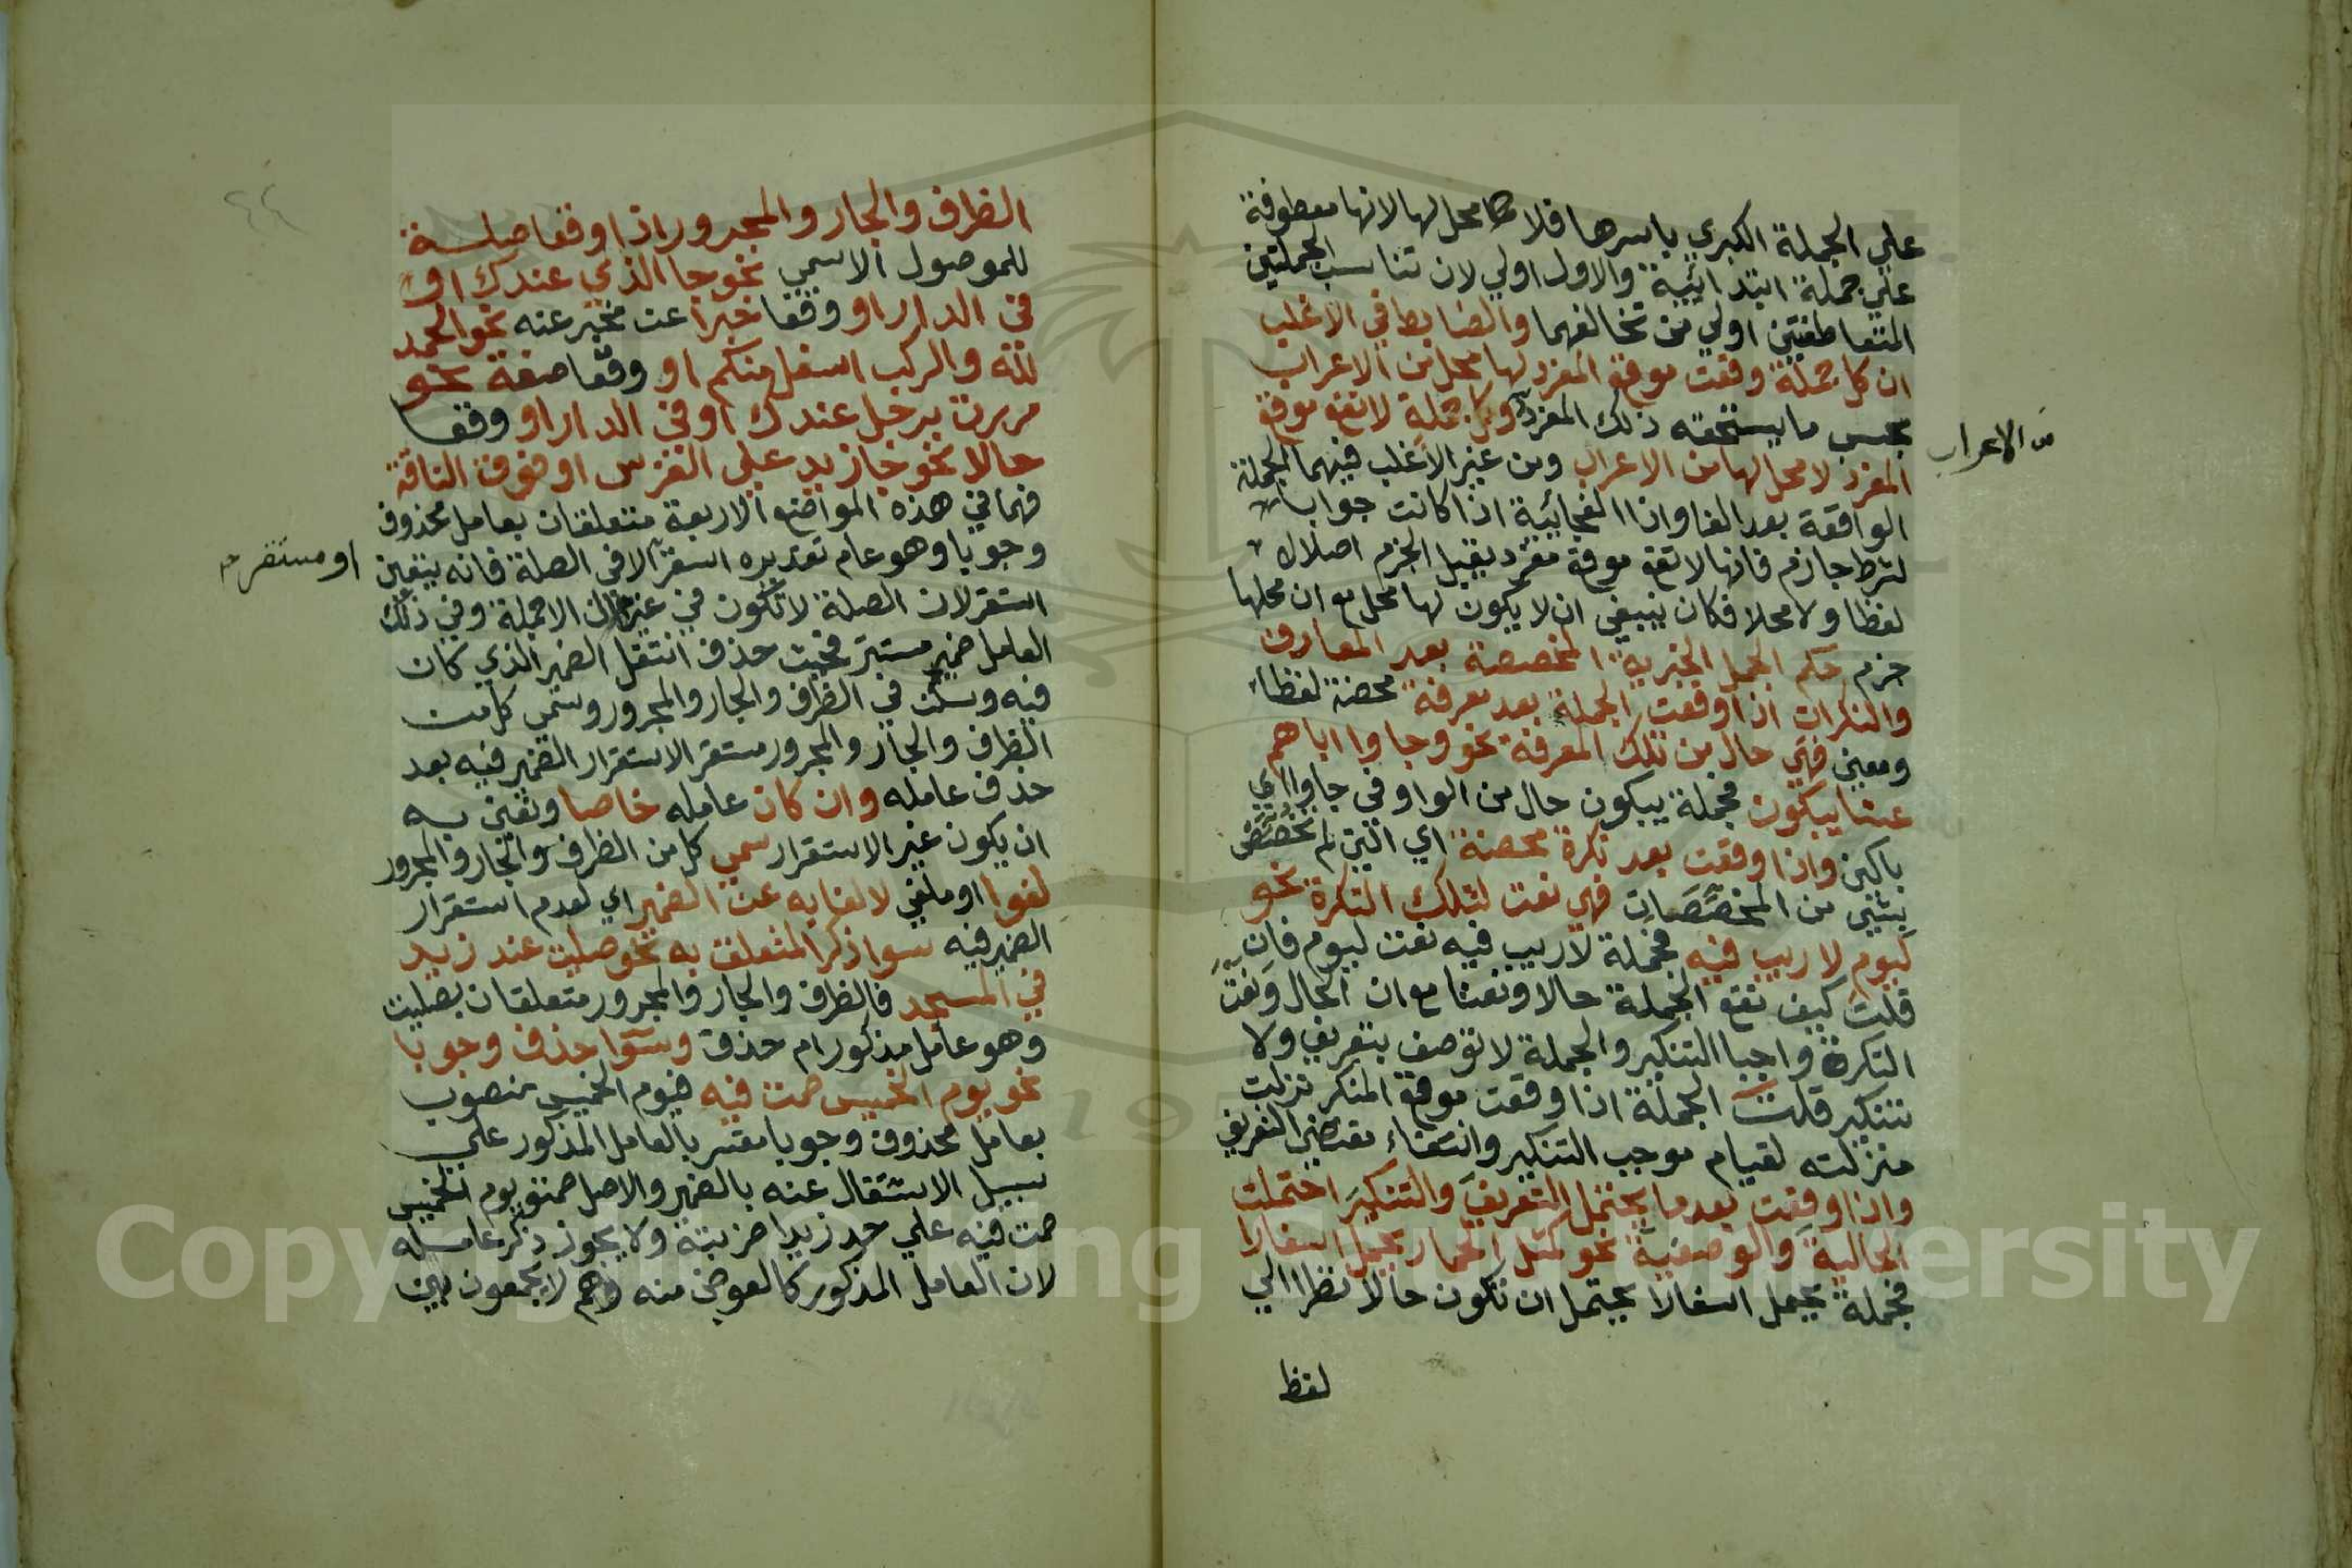 علي الجملة الكبري باسرها فلا محل لها لانها معطوفة
علي جملة ابتدائية والاول اولي لان تناسب الجملتين
المتعاطفتين اولي من تخالفهما والضابط في الاغلب
ان كل جملة وقعت موقع المفرد لها محل من الاعراب
بحسب ما يستحقه ذلك المفرد وكل جملة لا تقع موقع
من الاعراب
المفرد لا محل لها من الاعراب ومن غير الاغلب فيهما الجملة
الواقعة بعد الفا واذا الفجائية اذا كانت جوابا
لشرط جازم فانها لا تقع موقع مفرد يقبل الجزم اصلا لا
لفظا ولا محلا فكان ينبغي ان لا يكون لها محل مع ان محلها
جزم حكم الجمل الخبرية المخصصة بعد المعارف
والنكرات اذا وقعت الجملة بعد معرفة محضة لفظا
ومعني فهي حال من تلك المعرفة نحو وجاوا اباهم
عشا يبكون فجملة يبكون حال من الواو في جاوا اي
باكين واذا وقعت بعد نكرة محضة اي التي لم تخصص
بشي من المخصصات فهي نعت لتلك النكرة نحو
ليوم لا ريب فيه فجملة لا ريب فيه نعت ليوم فان
قلت كيف تقع الجملة حالا ونعتا مع ان الحال ونعت
النكرة واجبا التنكير والجملة لا توصف بتعريف ولا
تنكير قلت الجملة اذا وقعت موقع المنكر نزلت
منزلته لقيام موجب التنكير وانتفاء مقتضي التعريف
واذا وقعت بعد ما يحتمل التعريف والتنكير احتملت
الحالية والوصفية نحو كمثل الحمار يحمل اسفارا
فجملة يحمل اسفارا يحتمل ان تكون حالا نظرا الي
لفظ
٤٤
الظرف والجار والمجرور اذا وقعا صلة
للموصول الاسمي نحو جا الذي عندك او
في الدار او وقعا خبرا عن مخبر عنه نحو الحمد
لله والركب اسفل منكم او وقعا صفة نحو
مررت برجل عندك او في الدار او وقعا
حالا نحو جا زيد علي الفرس او فوق الناقة
فهما في هذه المواضع الاربعة متعلقان بعامل محذوف
وجوبا وهو عام تقديره استقر الا في الصلة فانه يتعين
او مستقر
استقر لان الصلة لا تكون في غير ال الا جملة وفي ذلك
العامل ضمير مستتر فحيث حذف انتقل الضمير الذي كان
فيه وسكن في الظرف والجار والمجرور وسمي كل من
الظرف والجار والمجرور مستقر الاستقرار الضمير فيه بعد
حذف عامله وان كان عامله خاصا ونعني به
ان يكون غير الاستقرار سمي كل من الظرف والجار والمجرور
لغوا او ملغي لالغايه عن الضمير اي لعدم استقرار
الضمير فيه سوا ذكر المتعلق به نحو صليت عند زيد
في المسجد فالظرف والجار والمجرور متعلقان بصليت
وهو عامل مذكور ام حذف وسوا حذف وجوبا
نحو يوم الخميس صمت فيه فيوم الخميس منصوب
بعامل محذوف وجوبا مفسر بالعامل المذكور علي
سبيل الاشتغال عنه بالضمير والاصل صمت يوم الخميس
صمت فيه علي حد زيدا ضربته ولا يجوز ذكر عامله
لان العامل المذكور كالعوض منه وهم لا يجمعون بين